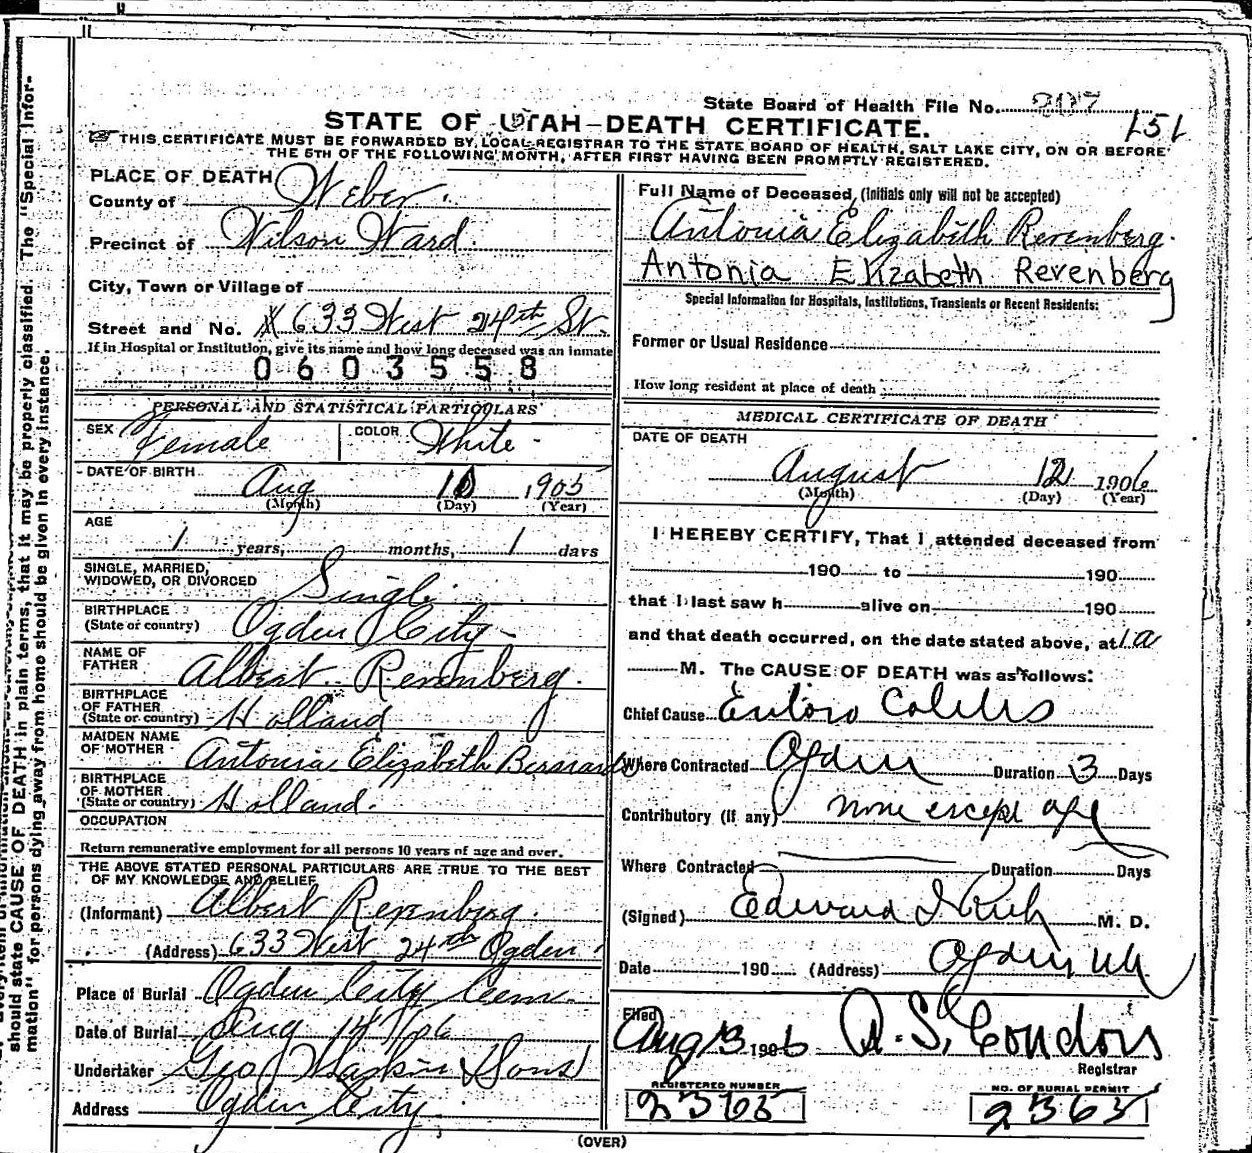 State Board of Health File No. 207
151
STATE OF UTAH—DEATH CERTIFICATE.
THIS CERTIFICATE MUST BE FORWARDED BY LOCAL REGISTRAR TO THE STATE BOARD OF HEALTH, SALT LAKE CITY, ON OR BEFORE
THE 5TH OF THE FOLLOWING MONTH, AFTER FIRST HAVING BEEN PROMPTLY REGISTERED.
PLACE OF DEATH
County of Weber.
Precinct of Wilson Ward.
City, Town or Village of
Street and No. 633 West 24th St.
If in Hospital or Institution, give its name and how long deceased was an inmate
0603558
PERSONAL AND STATISTICAL PARTICULARS
SEX Female COLOR White
DATE OF BIRTH
Aug 1905
(Month) (Day) (Year)
AGE
1 years, months, 1 days
SINGLE, MARRIED,
WIDOWED, OR DIVORCED Single
BIRTHPLACE
(State or country) Ogden City
NAME OF
FATHER Albert Revenberg.
BIRTHPLACE
OF FATHER
(State or country) Holland
MAIDEN NAME
OF MOTHER Antonia Elizabeth
BIRTHPLACE
OF MOTHER
(State or country) Holland.
OCCUPATION
Return remunerative employment for all persons 10 years of age and over.
THE ABOVE STATED PERSONAL PARTICULARS ARE TRUE TO THE BEST
OF MY KNOWLEDGE AND BELIEF
(Informant) Albert Revenberg.
(Address) 633 West 24th Ogden
Place of Burial Ogden City Cem.
Date of Burial Aug 14/06
Undertaker Geo & Sons
Address Ogden City.
Full Name of Deceased, (Initials only will not be accepted)
Antonia Elizabeth Revenberg.
Antonia Elizabeth Revenberg
Special Information for Hospitals, Institutions, Transients or Recent Residents:
Former or Usual Residence
How long resident at place of death
MEDICAL CERTIFICATE OF DEATH
DATE OF DEATH
August 12 1906
(Month) (Day) (Year)
I HEREBY CERTIFY, That I attended deceased from
190 to 190
that I last saw h alive on 190
and that death occurred, on the date stated above, at 1 a
M. The CAUSE OF DEATH was as follows:
Chief Cause Entero Colitis
Where Contracted Ogden Duration 3 Days
Contributory (If any) none except age
Where Contracted Duration Days
(Signed) Edward I Rich M. D.
Date 190 (Address) Ogden Ut
Filed
Aug 13 1906 A. S. Condon
Registrar
REGISTERED NUMBER
2365
NO. OF BURIAL PERMIT
2365
(OVER)
should state CAUSE OF DEATH in plain terms, that it may be properly classified. The "Special Infor-
mation" for persons dying away from home should be given in every instance.